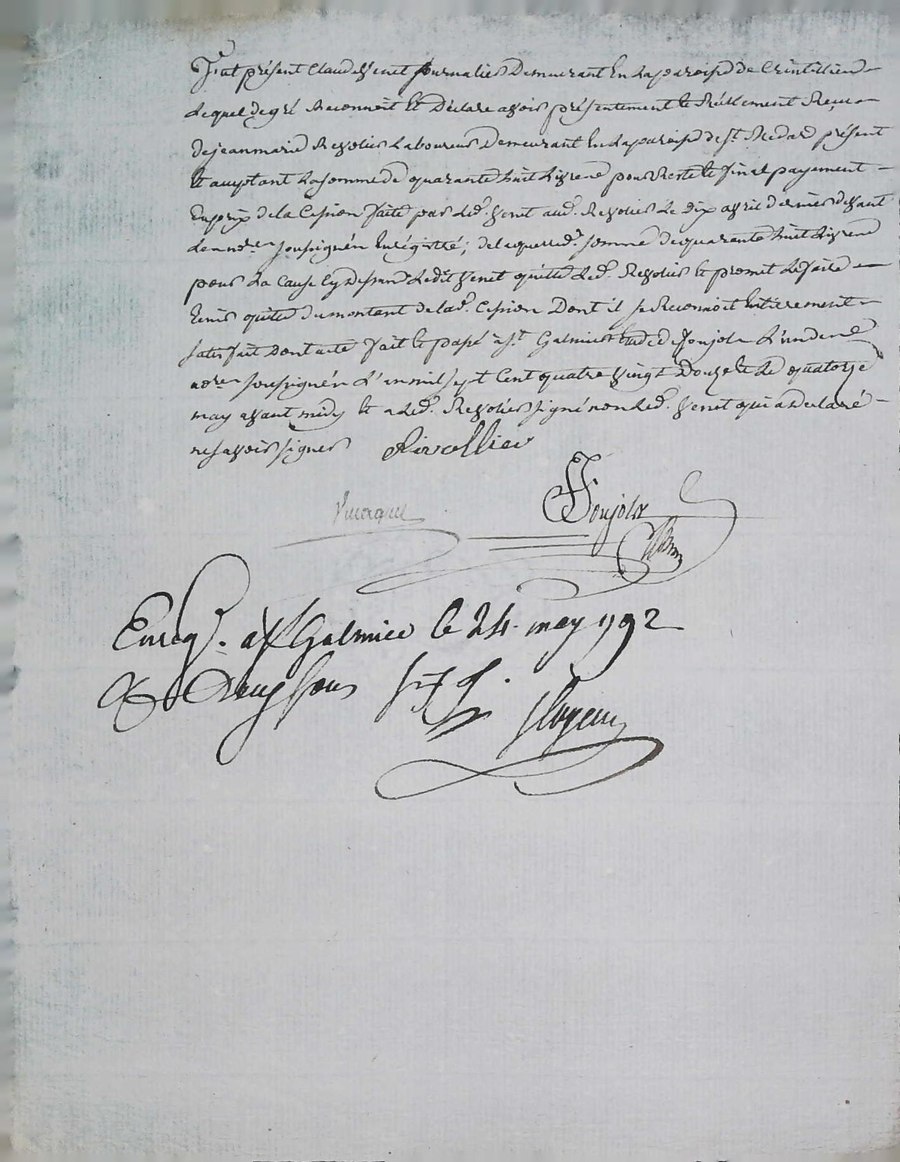 Fut présent Claude Venet journalier Demeurant En La paroisse de Crintilieu
Lequel de gré Reconnoit et Déclare avoir présentement et Réellement Reçu
de jean marie Revolier Laboureur Demeurant En La paroisse de St. Medard présent
et acceptant La somme de quarante huit Livres pour Reste et final payement
Du prix de la Cession faite par led. Venet aud. Revolier Le Dix avril dernier devant
Les nores soussignés Enrégistré; de laquelle d. somme de quarante huit Livres
pour La Cause Cy Dessus Ledit Venet quitte Led. Revolier et promet Le faire
tenir quitte du montant de lad. Cession Dont il se Reconnoit Entièrement
satisfait Dont acte fait et passé à St. Galmier Etude de Joujoln L'un des
nores soussignés L'an mil sept Cent quatre vingt Douze et Le quatorze
may avant midy et a Led. Revolier signé non Led. Venet qui a déclaré
ne savoir signer Rivollier
Joujoln
Enregt. a St Galmier le 24 may 1792
Sous